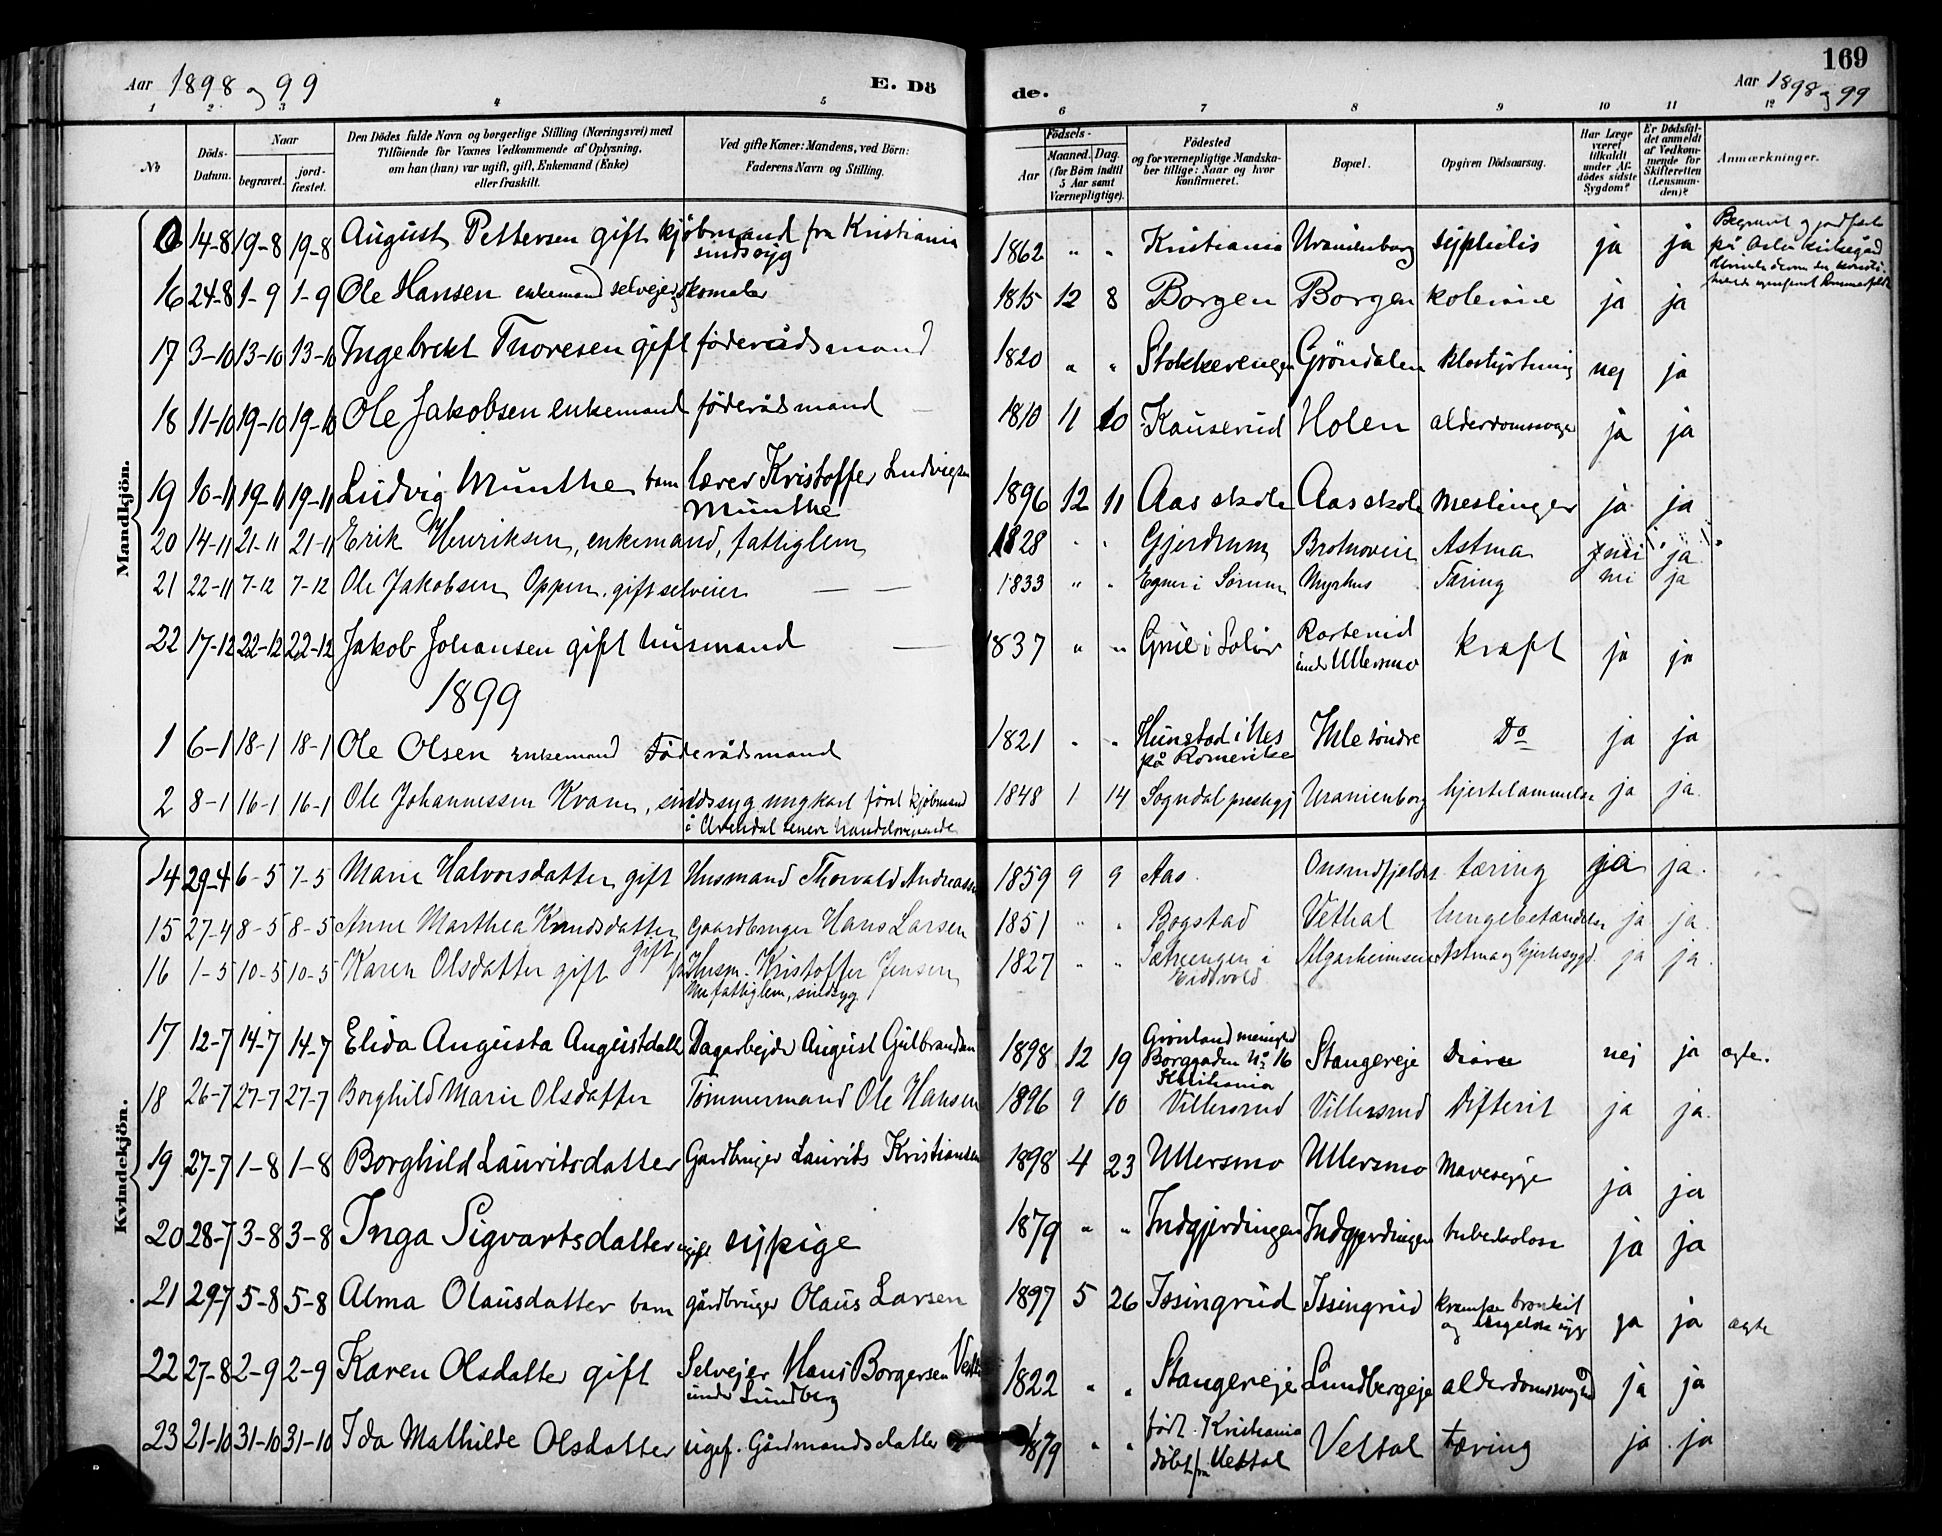 Aar 1898 og 99 E. Dö
de. Aar 1898 og 99 169
1 2 3 4 5 6 7 8 9 10 11 12
No
Döds-Datum.
Naar
begravet.
jordfæstet.
Den Dödes fulde Navn og borgerlige Stilling (Næringsvei) med
Tilföiende for Voxnes Vedkommende af Oplysning,
om han (hun) var ugift, gift, Enkemand (Enke)
eller fraskilt.
Ved gifte Koner: Mandens, ved Börn:
Faderens Navn og Stilling.
Födsels-
Aar
Maaned. Dag.
(for Börn indtil
5 Aar samt
Værnepligtige).
Födested
og for værnepligtige Mandska-
ber tillige: Naar og hvor
konfirmeret.
Bopæl.
Opgiven Dödsaarsag.
Har Læge
været
tilkaldt
under Af-
dödes sidste
Sygdom?
Er Dödsfal-
det anmeldt
af Vedkom-
mende for
Skifteretten
(Lensman-
den)?
Anmærkninger.
Mandkjön.
0 14-8 19-8 19-8 August Pettersen gift kjøbmand fra Kristiania sindssyg 1862 " " Kristiania Uranienborg syphilis ja ja
16 24-8 1-9 1-9 Ole Hansen enkemand selvejer skomaker 1815 12 8 Borgen Borgen kolerine ja ja
17 3-10 13-10 13-10 Ingebrekt Thoresen gift föderådsmand 1820 " " Stokkerengen Gröndalen nej ja
18 11-10 19-10 19-10 Ole Jakobsen enkemand föderådsmand 1810 11 10 Kauserud Holen ja ja
19 10-11 19-11 19-11 Ludvig Munthe barn lærer Kristoffer Ludvigsen Munthe 1896 12 11 Aas skole Aas skole Meslinger ja ja
20 14-11 21-11 21-11 Erik Henriksen, enkemand, fattiglem 1828 " " Gjerdrum Astma nei ja
21 22-11 7-12 7-12 Ole Jakobsen Oppen, gift selveier 1833 " " Egner i Sørum Myrhus Tæring nei ja
22 17-12 22-12 22-12 Jakob Johansen gift husmand 1837 " " Grue i Solør under Ullersmo kræft ja ja
1899
1 6-1 18-1 18-1 Ole Olsen Enkemand Föderådsmand 1821 " " Hunstad i Nes på Romerike Ihle söndre Do ja ja
2 8-1 16-1 16-1 Ole Johannessen Kvam, sindssyg ungkarl först kjöbmand i Arendal senere handelsreisende 1848 1 14 Sogndal prestegj Uranienborg hjertelammelse ja ja.
Kvindekjön.
14 29-4 6-5 7-5 Marie Halvorsdatter gift Husmand Thorvald Andreassen 1859 9 9 Aas. tæring ja ja.
15 27-4 8-5 8-5 Anne Marthea Knudsdatter gift Gaardbruger Hans Larsen 1851 " " Bogstad Vethal lungebetændelse ja ja.
16 1-5 10-5 10-5 Karen Olsdatter gift Husm. Kristoffer Jensen fattiglem, sindsyg 1827 " " Sætreengen i Eidsvold Algarheimseie Astma og hjertesygd. ja ja.
17 12-7 14-7 14-7 Elida Augusta Augustdatter Dagarbejder August Gulbrandsen 1898 12 19 Grönland menighed Borggaden No 16 Kristiania Stangereje Diarre nej ja ægte.
18 26-7 27-7 27-7 Borghild Marie Olsdatter Tömmermand Ole Hansen 1896 9 10 Villersrud Villersrud Difterit ja ja.
19 27-7 1-8 1-8 Borghild Lauritsdatter Gardbruger Laurits Kristiansen 1898 4 23 Ullersmo Ullersmo Mavesyge ja ja
20 28-7 3-8 3-8 Inga Sigvartsdatter ugift sypige 1879 " " Indgjerdingen Indgjerdingen tuberkolose ja ja
21 29-7 5-8 5-8 Alma Olausdatter barn gårdbruger Olaus Larsen 1897 5 26 Issingrud Issingrud krampe bronkit og engelsk syge ja ja ægte
22 27-8 2-9 2-9 Karen Olsdatter gift Selvejer Hans Borgersen under Lundberg 1822 " " Stangereje Lundbergeje alderdomssvaghed ja ja
23 21-10 31-10 31-10 Ida Mathilde Olsdatter ugif. Gårdmandsdatter 1879 " " födt Kristiania döbt fra Vettal Vettal tæring ja ja